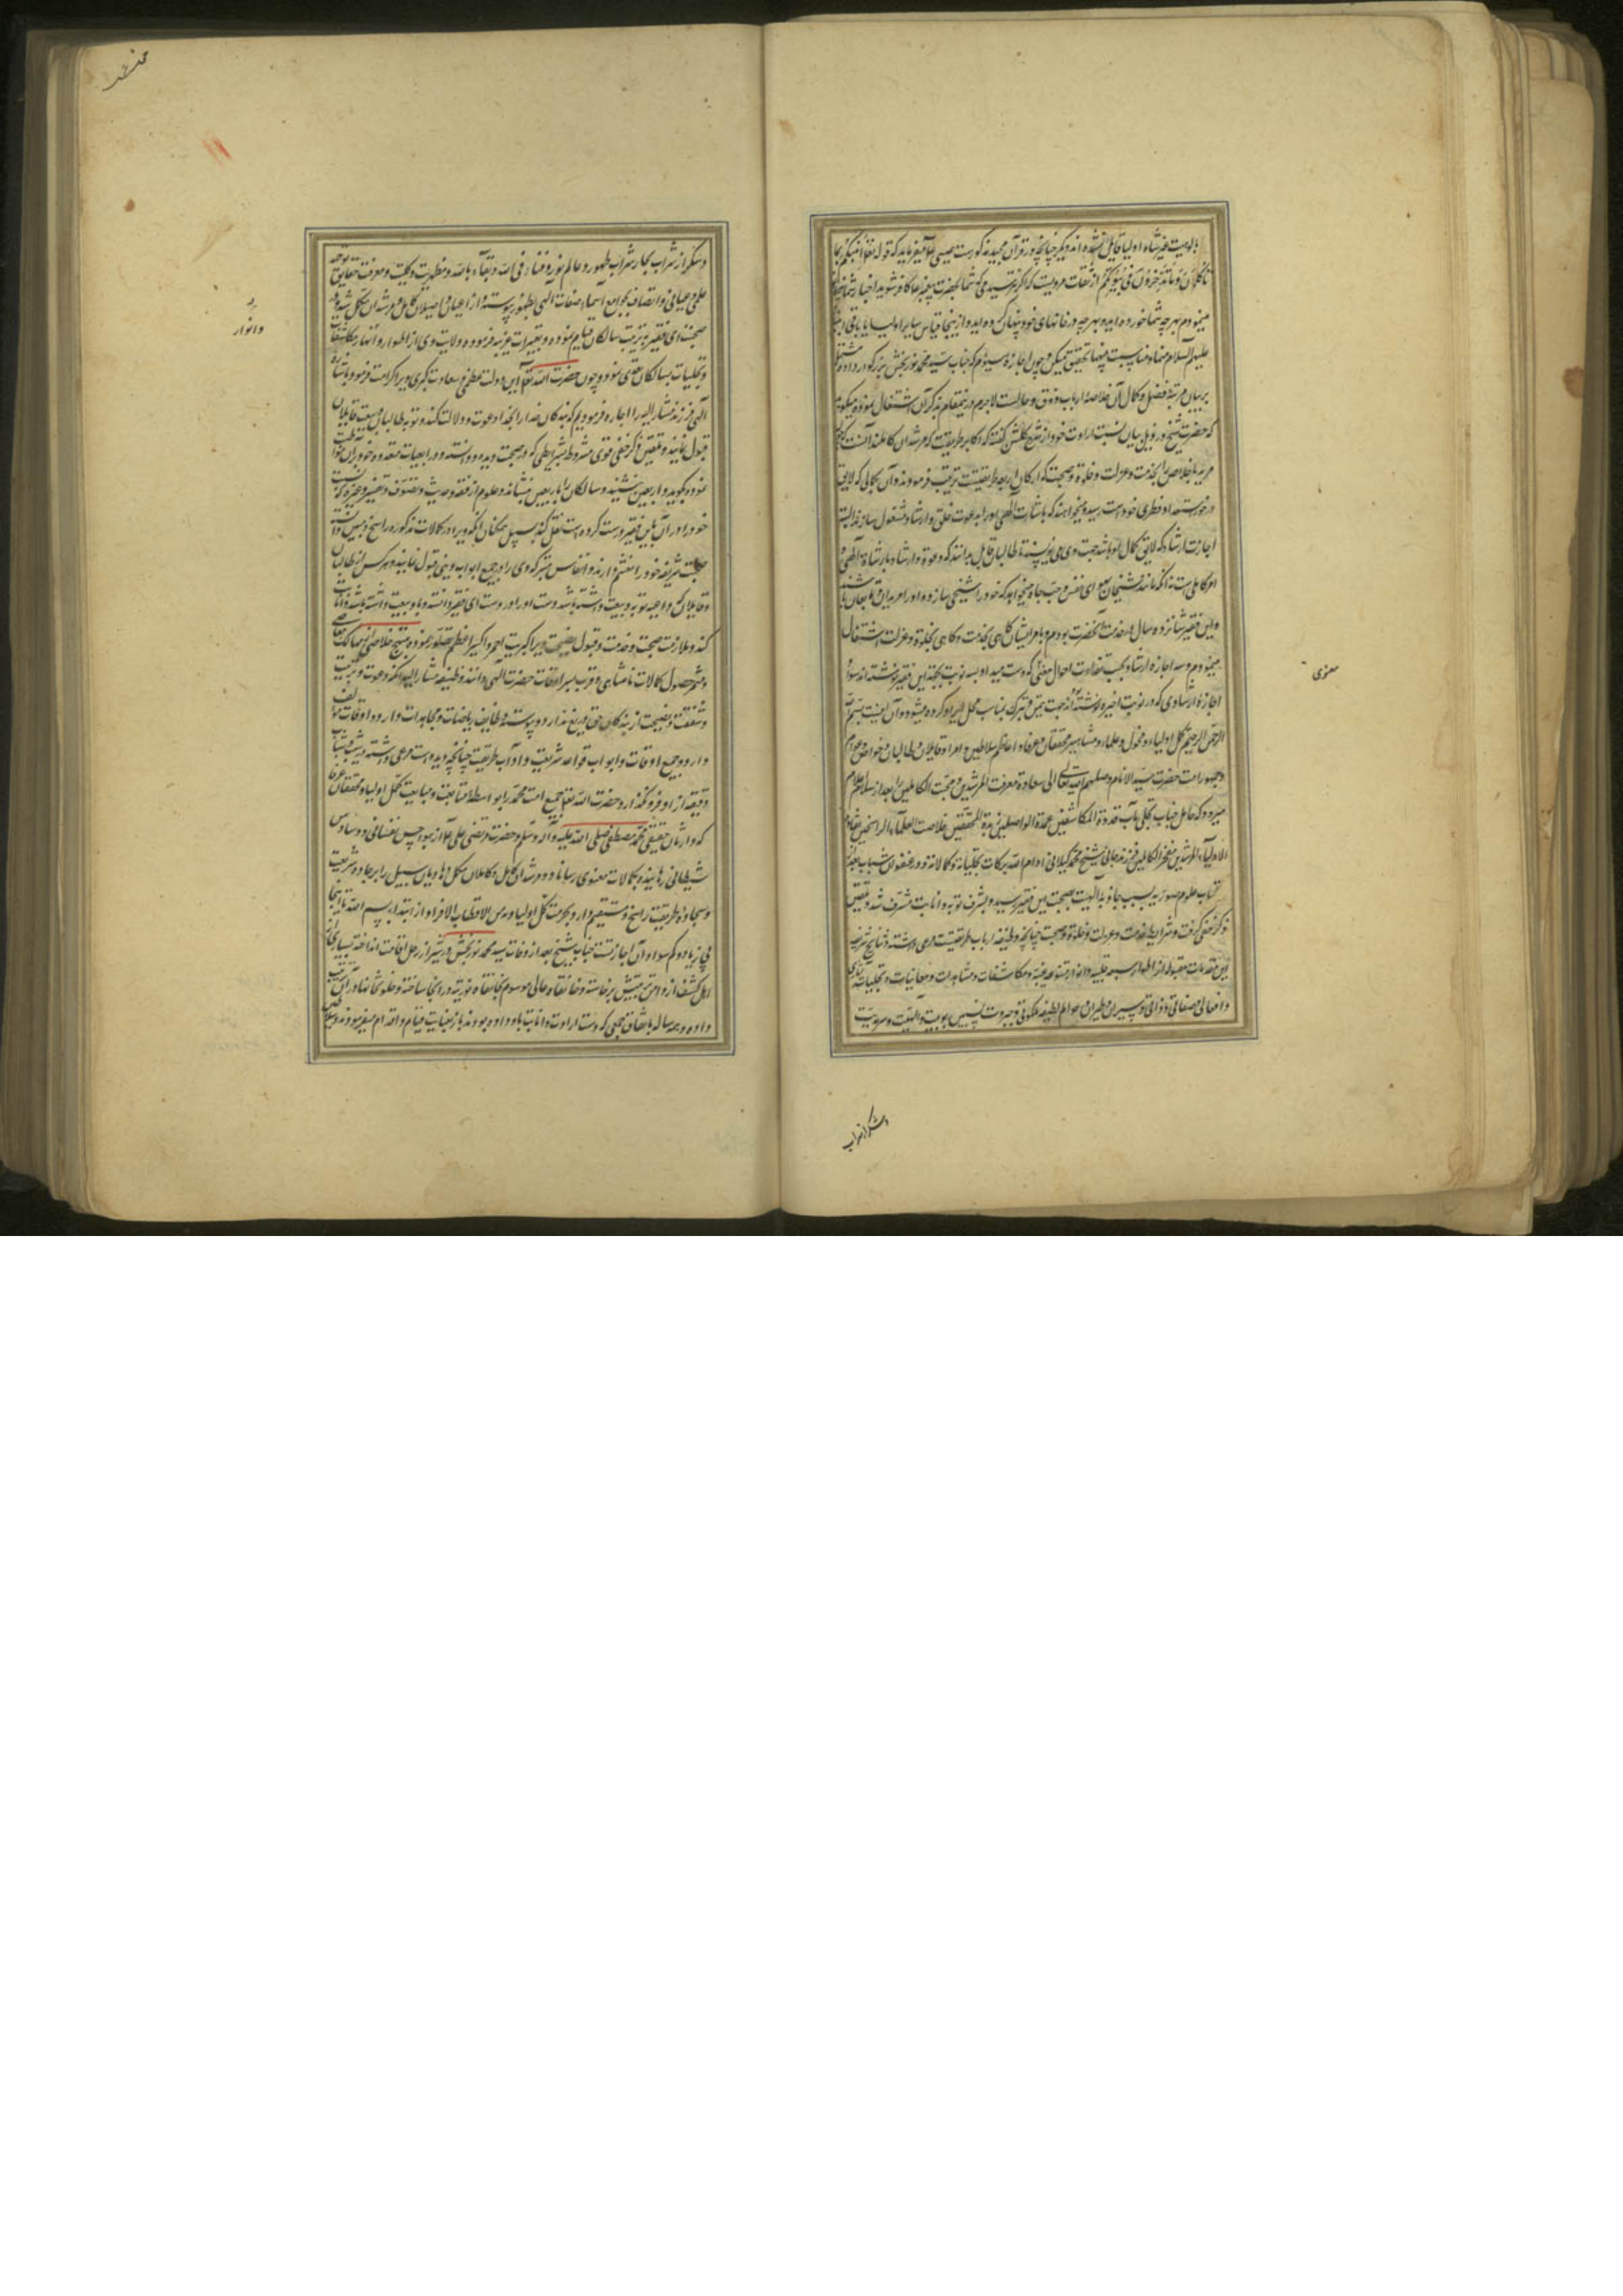 بالوهیت غیر شاه اولیا قایل نشده اند و دیگر چنانچه در قرآن مجید مذکورست عیسی میفرماید که قوله تعالی انبئکم بما
تأکلون و ما تدخرون فی بیوتکم از ثقات مرویست که اگر نترسیدمی که شما بحضرت پیغمبر ما کافر شوید اخبار شما
مینمودم بهر چه شما خورده اید و بهر چه در خانهای خود پنهان کرده اید و ازینجا قیاس سایر اولیا
علیهم السلام چون اجازه سیوم که جناب سید محمد نوربخش بزرگوار داده
بر بیان مرتبه فضل و کمال آن خلاصه ارباب ذوق و حالت لاجرم درینمقام بذکر آن اشتغال نموده میگوید
که حضرت شیخ در ذیل بیان نسبت ارادت خود از شرح گلشن گفته که اکابر طریقت که مرشدان کاملند آنست که چون
مرید باخلاص را بخدمت و عزلت و خلوة و صحبت که ارکان اربعه طریقتست تربیت فرمودند و آن بکمالی که لایق
در خور استعداد فطری خود است رسید و میخواهند که باشارت الهی او را بدعوت خلق و ارشاد مشغول سازند البته
اجازت ارشاد که لایق کمال او باشد جهت وی می نویسند تا طالبان قابل بدانند که دعوة و ارشاد باشارة الهی
امر کامل است نه آنکه مانند شیخان بهوای نفس و حب جاه میخواهد که خود را شیخی سازد و او را مریدان
و این فقیر شانزده سال در خدمت آنحضرت بودم و بامر ایشان گاهی بخدمت و گاهی بخلوة و عزلت اشتغال
مینمودم و سه اجازه ارشاد بحسب تفاوت احوال معنی که دست میداد بسه نوبت بجهة این فقیر نوشته اند سواد
اجازه ارشادی که در نوبت اخیره نوشته اند جهت تیمن و تبرک مناسب محل ایراد کرده میشود و آن اینست بسم الله
الرحمن الرحیم کمل اولیاء و فحول علماء و مشاهیر محققان و عرفاء و اعاظم سلاطین و امراء و قابلان و طالبان و خواص و عوام
و جمهور امت حضرت سید الانام وصلهم الله تعالی الی سعادة معرفت المرشدین و صحبت الکاملین را بعد از سلام اعلام
میرود که حامل جناب تجلی مآب قدوة المکاشفین عمدة الواصلین زبدة المحققین خلاصة العلماء الراسخین
الاولیاء المرشدین مفخر الکاملین فرزند جانی شیخ محمد گیلانی ادام الله برکات تجلیاته و کمالاته در عنفوان شباب بعد از
اکتساب علوم صوریه بسبب جاذبه الهیت بصحبت این فقیر رسید و بشرف توبه و انابت مشرف شد و تلقین
ذکر خفی گرفت و شرایط خدمت و عزلت و خلوة و صحبت چنانچه وظیفه ارباب طریقتست مرعی داشته و نتایج شریفه
این مقدمات مقبوله از اطوار سبعه قلبیه و انوار متنوعه غیبیه و مکاشفات و مشاهدات و معاینات و تجلیات
و افعالی و صفاتی و ذاتی و سیران و طیران عوالم لطیفه ملکوتی و جبروت
معنوی
و سکر از شراب
و سکر از شراب بحار شراب طهور و عالم نور و فناء فی الله و بقاء بالله و مظهریت کلیت و معرفت حقایق توحید
علمی و عیانی و اتصاف بجوامع اسماء و صفات الهی بظهور پیوسته و از اعیان واصلان کامل و مرشدان مکمل شده
صحبت ای فقیر به تربیت سالکان قیام نموده و تعبیرات عزیزه فرموده ولایت وی از اطوار و انهار مکاشفات
و تجلیات سالکان تقوی نموده و چون حضرت الله تعالی این دولت عظمی و سعادت کبری ویرا کرامت فرمود باشارة
الهی فرزند مشار الیه را اجازه فرمودیم که بندگان خدا را بخدا دعوت و دلالت کند و توبه طالبان و بیعت قابلان
قبول نماید و تلقین ذکر خفی قوی مشروط بشرایطی که در صحبت دیده و دانسته و در اربعینات متعدده خود
نموده بگوید و اربعین نشیند و سالکان را باربعین نشاند و علوم از فقه و حدیث و تصوف و تفسیر و غیره که نسبت
خود را در آن باین فقیر درست کرده است نقل کند سبیل همکنان آنکه ویرا در کمالات مذکوره راسخ و متین دانسته
صحبت شریف خود را مغتنم دارند و انفاس متبرکه وی را در جمیع ابواب دینی قبول نمایند و هر کس از طالبان
و قابلان که داعیه توبه و بیعت داشته باشد دست او را دست ای فقیر دانسته و باو بیعت و انابت
کند و ملازمت صحبت و خدمت و قبول نصیحت ویرا کبریت احمر و اکسیر اعظم تصور نموده منتج خلاصی از مهالک معاصی
و مثمر حصول کمالات نامتناهی و قرب سرادقات حضرت الهی دانند و وظیفه مشار الیه آنکه دعوت و تربیت
و شفقت و نصیحت از بندگان حق دریغ ندارد و پیوسته وظایف ریاضات و مجاهدات دارد و اوقات
دارد و جمیع اوقات و ابواب قواعد شریعت و آداب طریقت چنانچه دیده است مرعی داشته
دقیقه از او فرو نگذارد حضرت الله تعالی جمیع امت محمد را بواسطه متابعت و مبایعت کمل اولیاء و محققان عرفا
که وارثان حقیقی محمد مصطفی صلی الله علیه و آله و سلم و حضرت مرتضی علی اند از هواجس نفسانی و وساوس
شیطانی رهانیده بکمالات معنوی رساناد و مرشدان کامل و کاملان مکمل و هادیان سبیل را بر جاده شریعت
و سجاده طریقت راسخ و مستقیم دارد بحرمت کمل اولیاء و من الاقطاب الافراد از ابتداء بسم الله تا اینجا
بی زیاده و کم سواد آن اجازتست جناب شیخ بعد از وفات سید محمد نوربخش در شیراز رحل اقامت انداخته بسیاری از
اهل کشف از دامن تربیتش برخاسته و خانقاه عالی موسوم بخانقاه نوریه در آنجا ساخته و خلوتخانها در آن
داده و همه ساله باتفاق جمعی که دست ارادت و انابت باو داده بودند باربعینات قیام و اقدام میفرمودند
و انوار